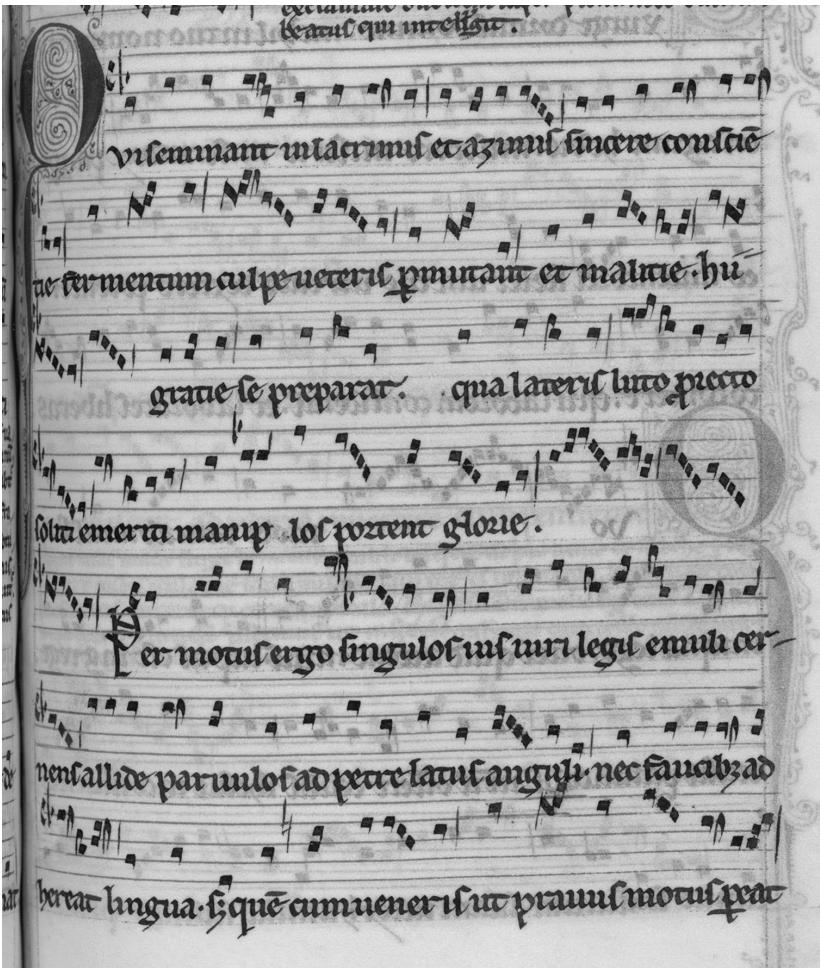 beatus qui intelligit.
Qui seminant in lacrimis et azimis sincere consciē
tie fermentum culpe ueteris ꝑmutant et malitie. hu
gratie se preparat. qua lateris luto ꝓiecto
soliti emeriti manip los portent glorie.
Per motus ergo singulos uis iuri legis emuli cer-
nens allide paruulos ad petre latus anguli. nec faucibꝫ ad
hereat lingua. sꝫ quē cum ueneris ut prauus motus ꝑeat